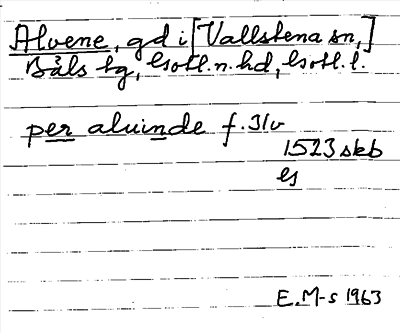 Alvene, gd i [Vallstena sn,]
Bäls tg, Gotl. n. hd, Gotl. l.
per aluinde f. 31v
1523 skb
es
E.M-s 1963